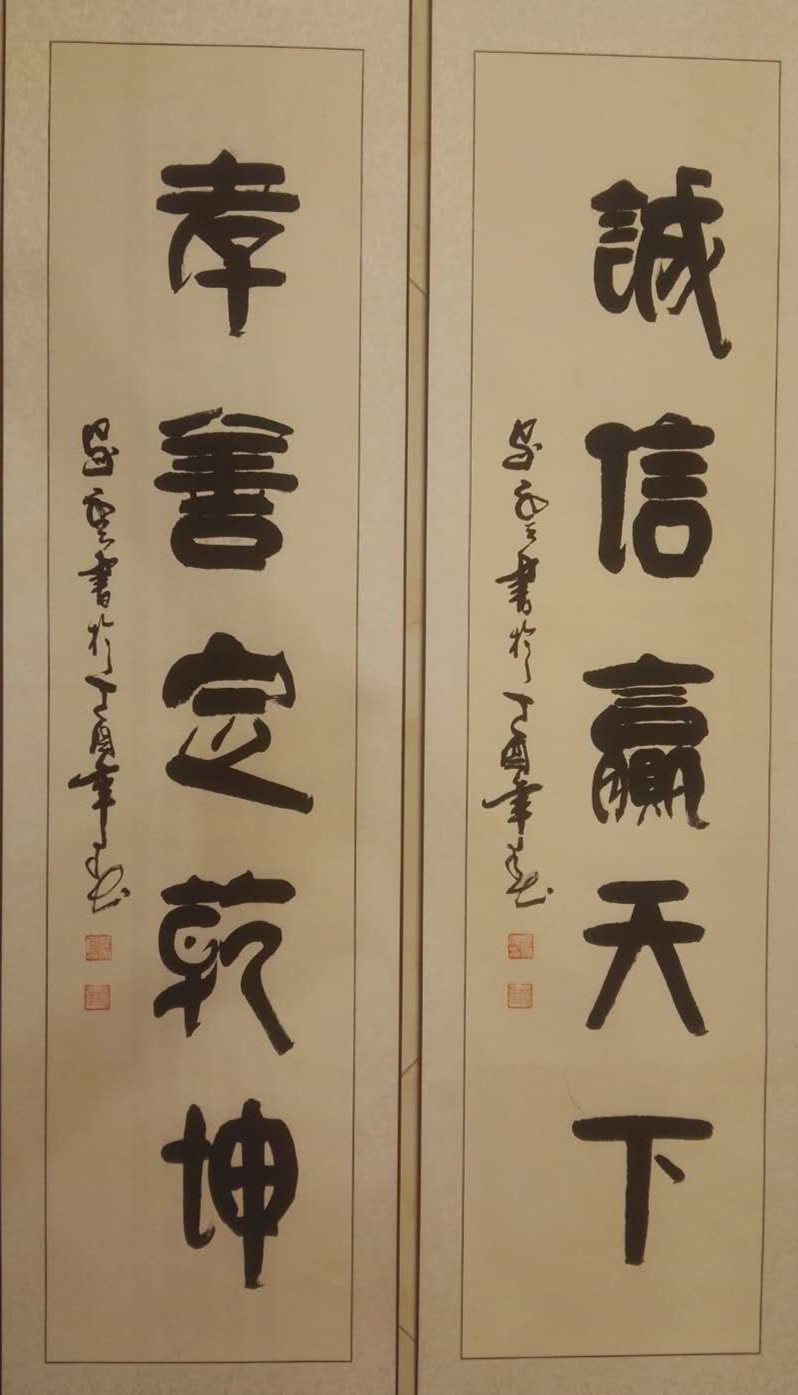 誠信贏天下
書於丁酉年春
孝善定乾坤
書於丁酉年春